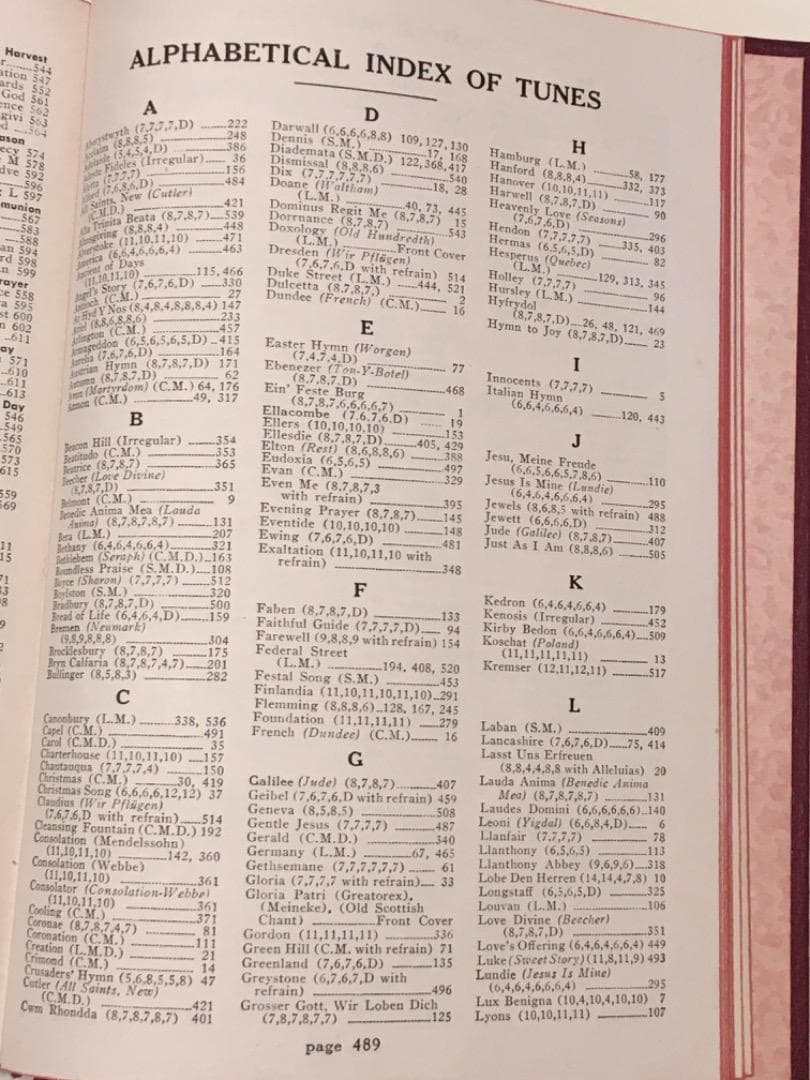 Harvest
544
ation 547
ards 552
God 561
ence 562
givi 563
ed 564
ason
ecy 574
e M 578
dve 592
596
g L 597
munion
567
583
588
an 594
rd 598
n 599
rayer
ce 558
ra 595
st 600
n 602
611
ay
571
610
611
613
Day
546
549
565
570
573
615
559
569
11
15
ALPHABETICAL INDEX OF TUNES
A
Aberystwyth (7,7,7,7,D) 222
(8,8,8,5) 248
(5,4,5,4,D) 386
Adeste Fideles (Irregular) 36
(7,7,7,7) 156
(7,6,8,6,D) 484
All Saints, New (Cutler)
(C.M.D.) 421
Alla Trinita Beata (8,7,8,7) 539
Almsgiving (8,8,8,4) 448
(11,10,11,10) 471
America (6,6,4,6,6,6,4) 463
Ancient of Days
(11,10,11,10) 115, 466
Angel's Story (7,6,7,6,D) 330
Antioch (C.M.) 27
Ar Hyd Y Nos (8,4,8,4,8,8,8,4) 147
(8,8,6,8,8,6) 233
Arlington (C.M.) 457
Armageddon (6,5,6,5,6,5,D) 415
Aurelia (7,6,7,6,D) 164
Austrian Hymn (8,7,8,7,D) 171
Autumn (8,7,8,7,D) 62
Avon (Martyrdom) (C.M.) 64, 176
Azmon (C.M.) 49, 317
B
Beacon Hill (Irregular) 354
Beatitudo (C.M.) 353
Beatrice (8,7,8,7) 365
Beecher (Love Divine)
(8,7,8,7,D) 351
Belmont (C.M.) 9
Benedic Anima Mea (Lauda
Anima) (8,7,8,7,8,7) 131
Bera (L.M.) 207
Bethany (6,4,6,4,6,6,4) 321
Bethlehem (Seraph) (C.M.D.) 163
Boundless Praise (S.M.D.) 108
Boyce (Sharon) (7,7,7,7) 512
Boylston (S.M.) 320
Bradbury (8,7,8,7,D) 500
Bread of Life (6,4,6,4,D) 159
Bremen (Neumark)
(9,8,9,8,8,8) 304
Brocklesbury (8,7,8,7) 175
Bryn Calfaria (8,7,8,7,4,7) 201
Bullinger (8,5,8,3) 282
C
Canonbury (L.M.) 338, 536
Capel (C.M.) 491
Carol (C.M.D.) 35
Charterhouse (11,10,11,10) 157
Chautauqua (7,7,7,7,4) 150
Christmas (C.M.) 30, 419
Christmas Song (6,6,6,6,12,12) 37
Claudius (Wir Pflügen)
(7,6,7,6,D with refrain) 514
Cleansing Fountain (C.M.D.) 192
Consolation (Mendelssohn)
(11,10,11,10) 142, 360
Consolation (Webbe)
(11,10,11,10) 361
Consolator (Consolation-Webbe)
(11,10,11,10) 361
Cooling (C.M.) 371
Coronae (8,7,8,7,4,7) 81
Coronation (C.M.) 111
Creation (L.M.D.) 21
Crimond (C.M.) 14
Crusaders' Hymn (5,6,8,5,5,8) 47
Cutler (All Saints, New)
(C.M.D.) 421
Cwm Rhondda (8,7,8,7,8,7) 401
D
Darwall (6,6,6,6,8,8) 109, 127, 130
Dennis (S.M.) 17, 168
Diademata (S.M.D.) 122, 368, 417
Dismissal (8,8,8,6) 540
Dix (7,7,7,7,7,7) 18, 28
Doane (Waltham)
(L.M.) 40, 73, 445
Dominus Regit Me (8,7,8,7) 15
Dorrnance (8,7,8,7) 543
Doxology (Old Hundredth)
(L.M.) Front Cover
Dresden (Wir Pflügen)
(7,6,7,6,D with refrain) 514
Duke Street (L.M.) 444, 521
Dulcetta (8,7,8,7) 2
Dundee (French) (C.M.) 16
E
Easter Hymn (Worgan)
(7,4,7,4,D) 77
Ebenezer (Ton-Y-Botel)
(8,7,8,7,D) 468
Ein' Feste Burg
(8,7,8,7,6,6,6,6,7) 1
Ellacombe (7,6,7,6,D) 19
Ellers (10,10,10,10) 153
Ellesdie (8,7,8,7,D) 405, 429
Elton (Rest) (8,6,8,8,6) 388
Eudoxia (6,5,6,5) 497
Evan (C.M.) 329
Even Me (8,7,8,7,3
with refrain) 395
Evening Prayer (8,7,8,7) 145
Eventide (10,10,10,10) 148
Ewing (7,6,7,6,D) 481
Exaltation (11,10,11,10 with
refrain) 348
F
Faben (8,7,8,7,D) 133
Faithful Guide (7,7,7,7,D) 94
Farewell (9,8,8,9 with refrain) 154
Federal Street
(L.M.) 194, 408, 520
Festal Song (S.M.) 453
Finlandia (11,10,11,10,11,10) 291
Flemming (8,8,8,6) 128, 167, 245
Foundation (11,11,11,11) 279
French (Dundee) (C.M.) 16
G
Galilee (Jude) (8,7,8,7) 407
Geibel (7,6,7,6,D with refrain) 459
Geneva (8,5,8,5) 508
Gentle Jesus (7,7,7,7) 487
Gerald (C.M.D.) 340
Germany (L.M.) 67, 465
Gethsemane (7,7,7,7,7,7) 61
Gloria (7,7,7,7 with refrain) 33
Gloria Patri (Greatorex),
(Meineke), (Old Scottish
Chant) Front Cover
Gordon (11,11,11,11) 336
Green Hill (C.M. with refrain) 71
Greenland (7,6,7,6,D) 135
Greystone (6,7,6,7,D with
refrain) 496
Grosser Gott, Wir Loben Dich
(7,8,7,8,7,7) 125
H
Hamburg (L.M.) 58, 177
Hanford (8,8,8,4) 332, 373
Hanover (10,10,11,11) 117
Harwell (8,7,8,7,D) 90
Heavenly Love (Seasons)
(7,6,7,6,D) 296
Hendon (7,7,7,7,7) 335, 403
Hermas (6,5,6,5,D) 82
Hesperus (Quebec)
(L.M.) 129, 313, 345
Holley (7,7,7,7) 96
Hursley (L.M.) 144
Hyfrydol
(8,7,8,7,D) 26, 48, 121, 469
Hymn to Joy (8,7,8,7,D) 23
I
Innocents (7,7,7,7) 5
Italian Hymn
(6,6,4,6,6,6,4) 120, 443
J
Jesu, Meine Freude
(6,6,5,6,6,5,7,8,6) 110
Jesus Is Mine (Lundie)
(6,4,6,4,6,6,6,4) 295
Jewels (8,6,8,5 with refrain) 488
Jewett (6,6,6,6,D) 312
Jude (Galilee) (8,7,8,7) 407
Just As I Am (8,8,8,6) 505
K
Kedron (6,4,6,4,6,6,4) 179
Kenosis (Irregular) 452
Kirby Bedon (6,6,4,6,6,6,4) 509
Koschat (Poland)
(11,11,11,11,11) 13
Kremser (12,11,12,11) 517
L
Laban (S.M.) 409
Lancashire (7,6,7,6,D) 75, 414
Lasst Uns Erfreuen
(8,8,4,4,8,8 with Alleluias) 20
Lauda Anima (Benedic Anima
Mea) (8,7,8,7,8,7) 131
Laudes Domini (6,6,6,6,6,6) 140
Leoni (Yigdal) (6,6,8,4,D) 6
Llanfair (7,7,7,7) 78
Llanthony (6,5,6,5) 113
Llanthony Abbey (9,6,9,6) 318
Lobe Den Herren (14,14,4,7,8) 10
Longstaff (6,5,6,5,D) 325
Louvan (L.M.) 106
Love Divine (Beecher)
(8,7,8,7,D) 351
Love's Offering (6,4,6,4,6,6,4) 449
Luke (Sweet Story) (11,8,11,9) 493
Lundie (Jesus Is Mine)
(6,4,6,4,6,6,6,4) 295
Lux Benigna (10,4,10,4,10,10) 7
Lyons (10,10,11,11) 107
page 489